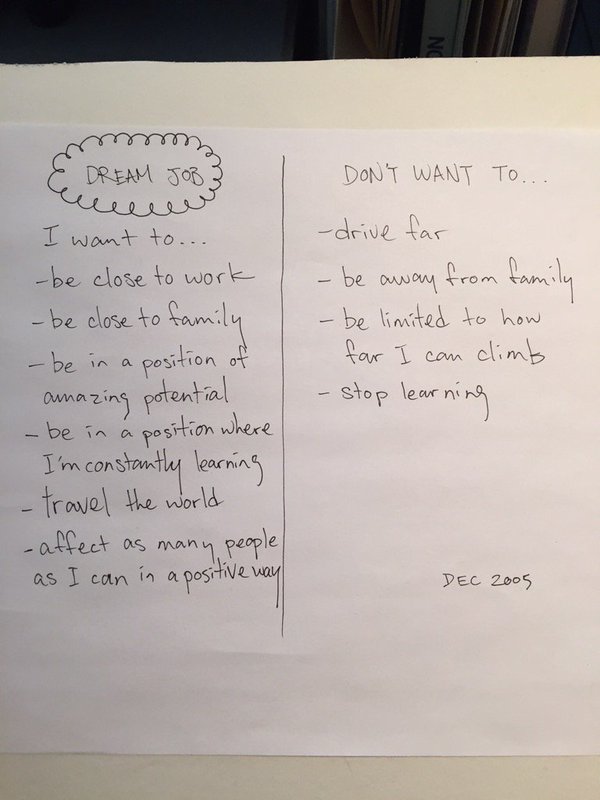 ON
DREAM JOB
I want to...
-be close to work
-be close to family
-be in a position of
amazing potential
-be in a position where
I'm constantly learning
-travel the world
-affect as many people
as I can in a positive way
DON'T WANT TO...
-drive far
-be away from family
-be limited to how
far I can climb
-stop learning
DEC 2005